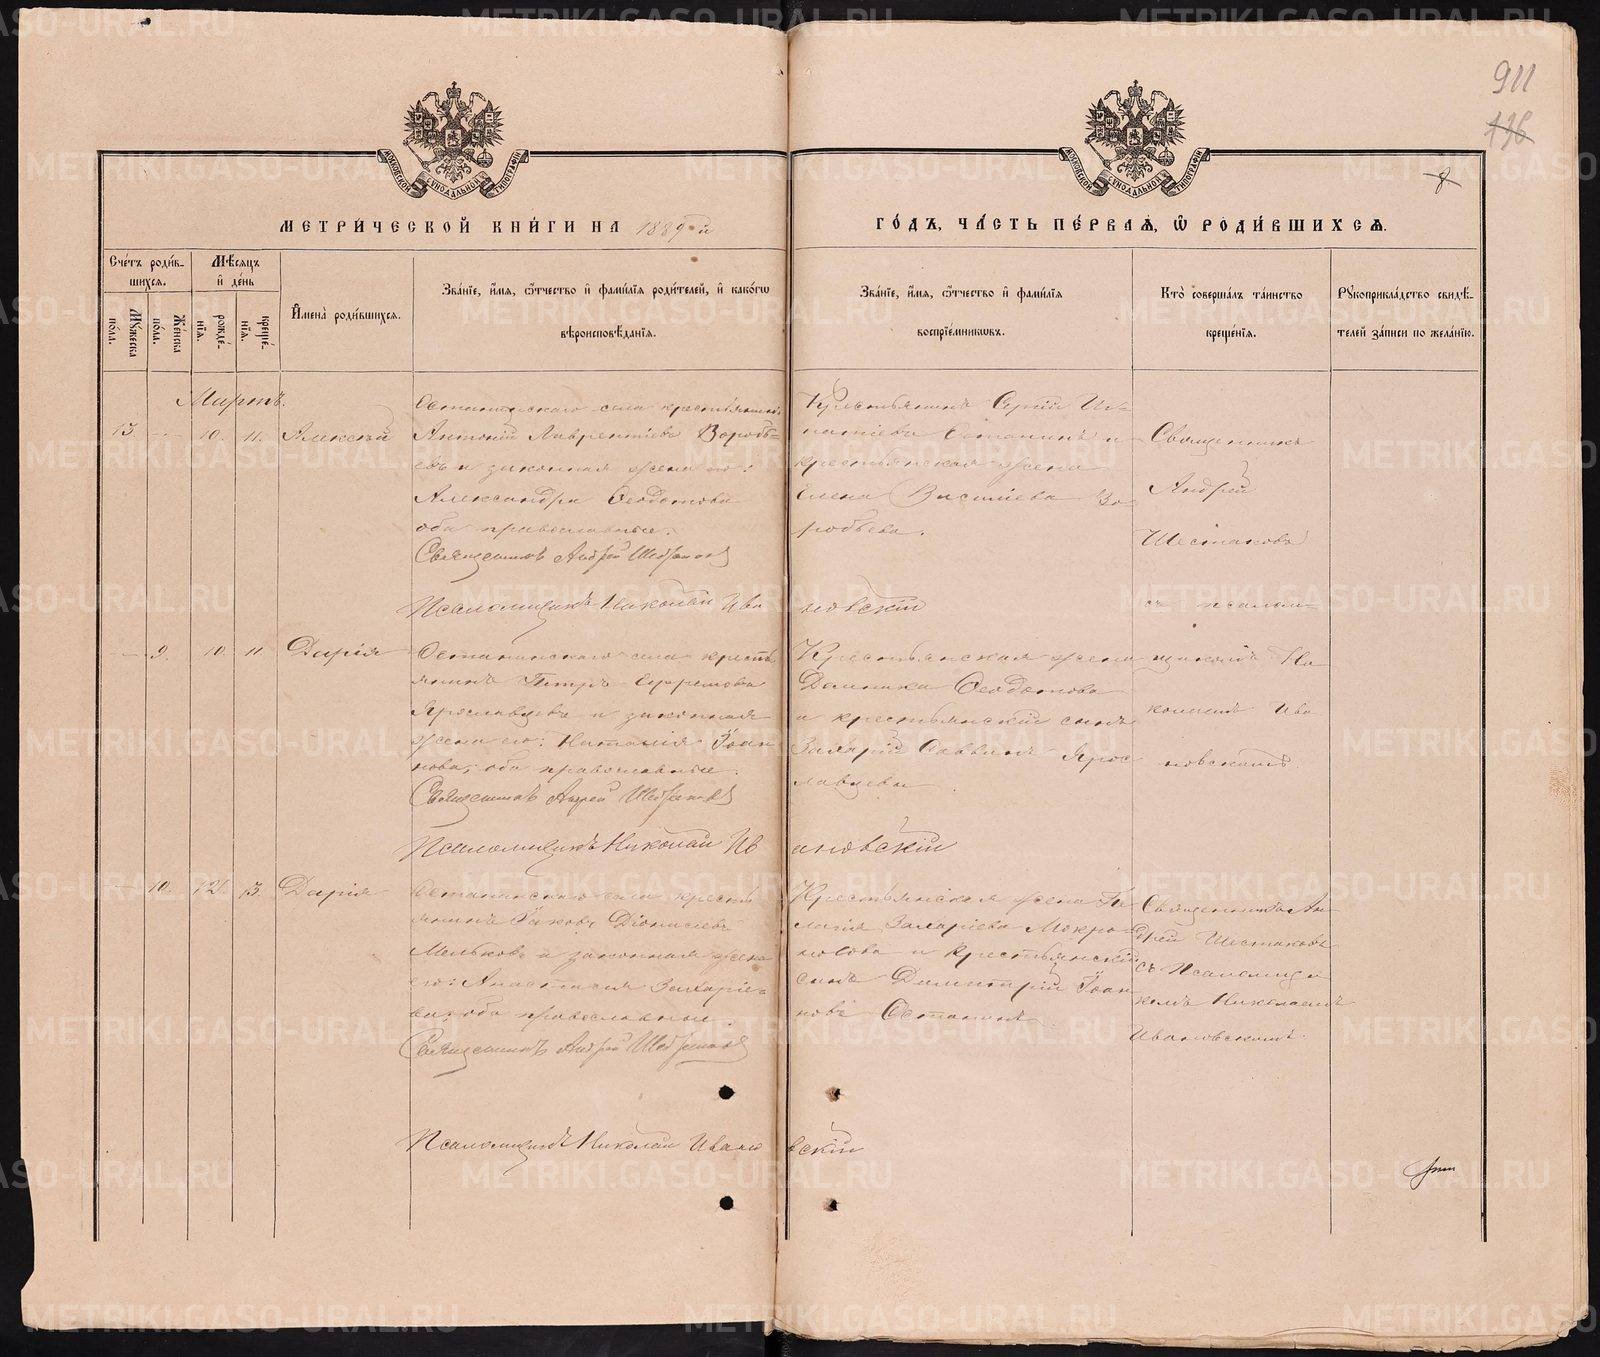 911
136
8
МОСКОВСКОЙ СУНОДАЛЬНОЙ ТИПОГРАФІИ
МОСКОВСКОЙ СУНОДАЛЬНОЙ ТИПОГРАФІИ
МЕТРИЧЕСКОЙ КНИГИ НА 1889 й
ГОДЪ, ЧАСТЬ ПЕРВАЯ, Ѡ РОДИВШИХСЯ.
Счетъ родив-
шихся.
Мужеска пола.
Женска пола.
Мѣсяцъ
и день
рожде-
нія.
креще-
нія.
Имена родившихся.
Званіе, имя, отчество и фамилія родителей, и какогѡ
вѣроисповѣданія.
Званіе, имя, отчество и фамилія
воспріемниковъ.
Кто совершалъ таинство
крещенія.
Рукоприкладство свидѣ-
телей записи по желанію.
Мартъ.
13
10.
11.
Алексѣй
Останинскаго села крестьянинъ
Антоній Лаврентіевъ Воробь-
евъ и законная жена его:
Александра Ѳеодотова
оба православные.
Священникъ Андрей Шестаковъ
Псаломщикъ Николай Ива
Крестьянинъ Сергій Иг-
натіевъ Останинъ и
крестьянская жена
Елена Васильева Во-
робьева.
новскій
Священникъ
Андрей
Шестаковъ
съ псалом-
щикомъ Ни
колаемъ Ива
новскимъ.
9.
10.
11.
Дарія
Останинскаго села кресть
янинъ Петръ Ефремовъ
Ярославцевъ и законная
жена его: Наталія Іоан
нова, оба православные.
Священникъ Андрей Шестаковъ
Псаломщикъ Николай Ив
Крестьянская жена
Домника Ѳеодотова
и крестьянскій сынъ
Захарій Саввинъ Ярос
лавцевы.
ановскій
10.
12.
13.
Дарія
Останинскаго села кресть
янинъ Іаковъ Діонисіевъ
Мельковъ и законная жена
его: Анастасія Захаріе-
ва, оба православные.
Священникъ Андрей Шестаковъ
Псаломщикъ Николай Ивано
Крестьянская жена Пе
лагія Захаріева Мокро-
носова и крестьянскій
сынъ Димитрій Іоан
новъ Останинъ
вскій
Священникъ Ан-
дрей Шестаковъ
съ Псаломщи
комъ Николаемъ
Ивановскимъ.
METRIKI.GASO-URAL.RU